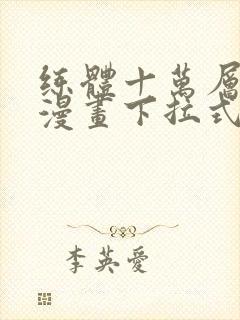 練體十萬層
漫畫下拉式
李英愛